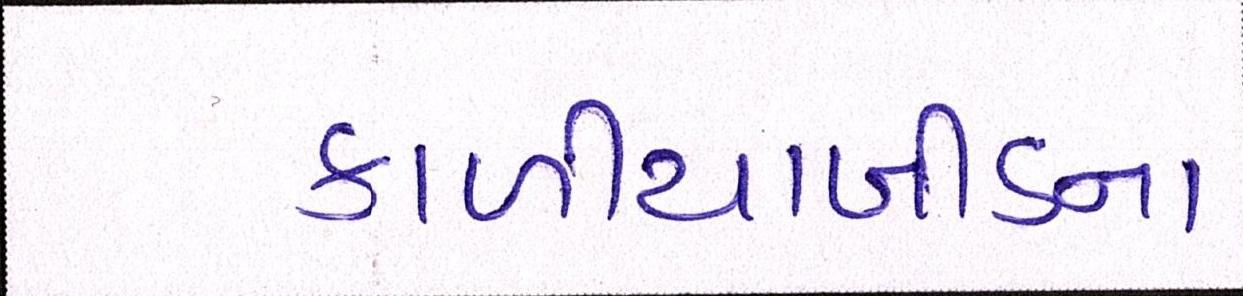 કાળીયાબીડના